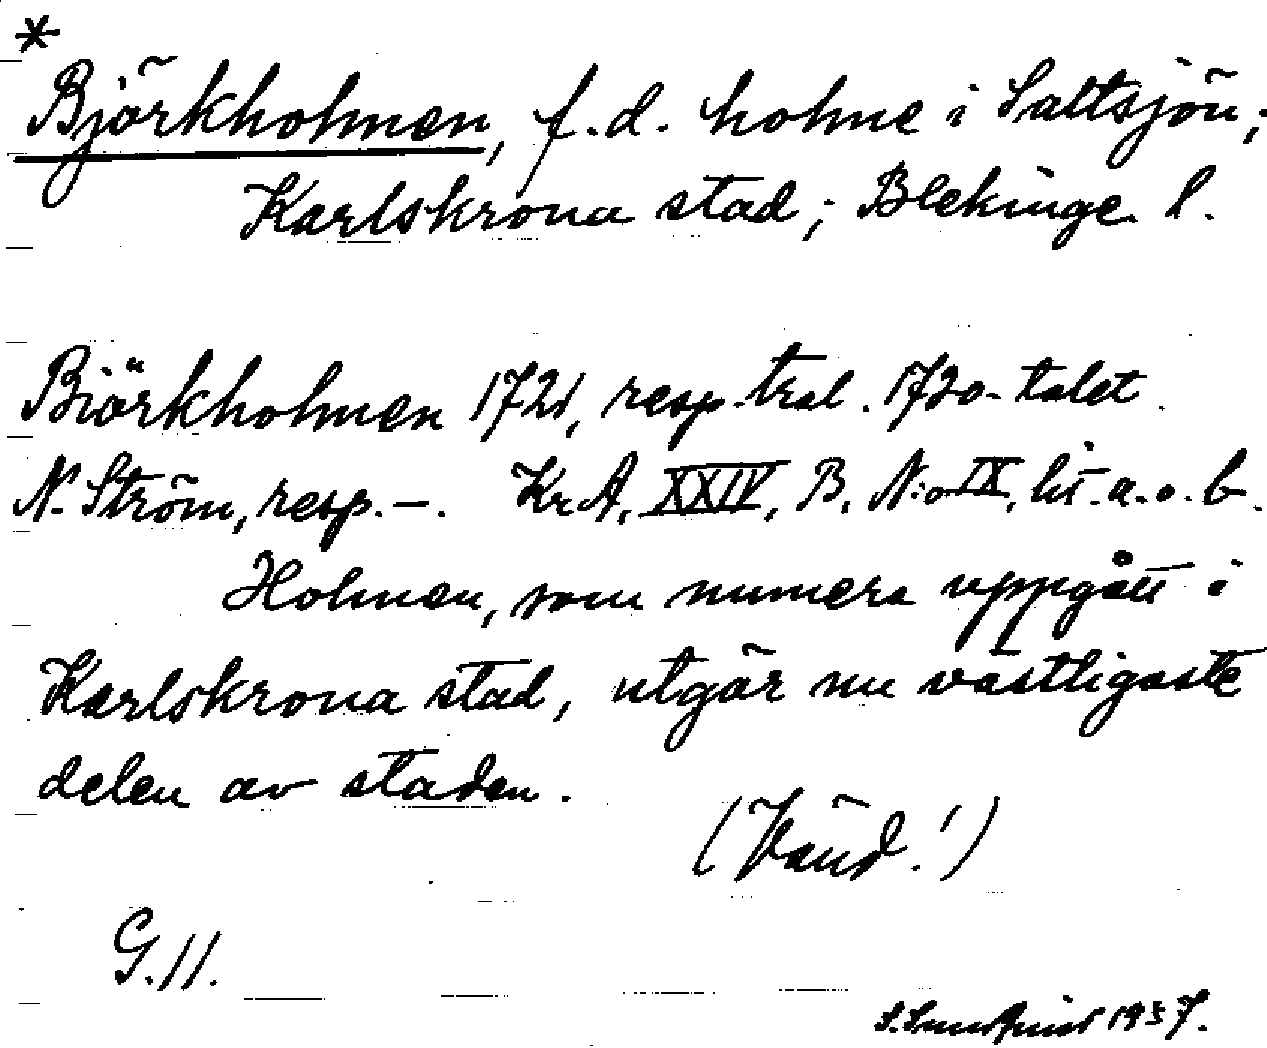 *
Björkholmen, f.d. holme i Saltsjön;
Karlskrona stad; Blekinge l.
Biörkholmen 1721, resp. tral. 1720-talet.
N. Ström, resp. –. Kr.A, XXIV, B. N:o IX, lit. a. o. b.
Holmen, som numera uppgått i
Karlskrona stad, utgör nu västligaste
delen av staden.
(Vänd!)
G.11.
1937.